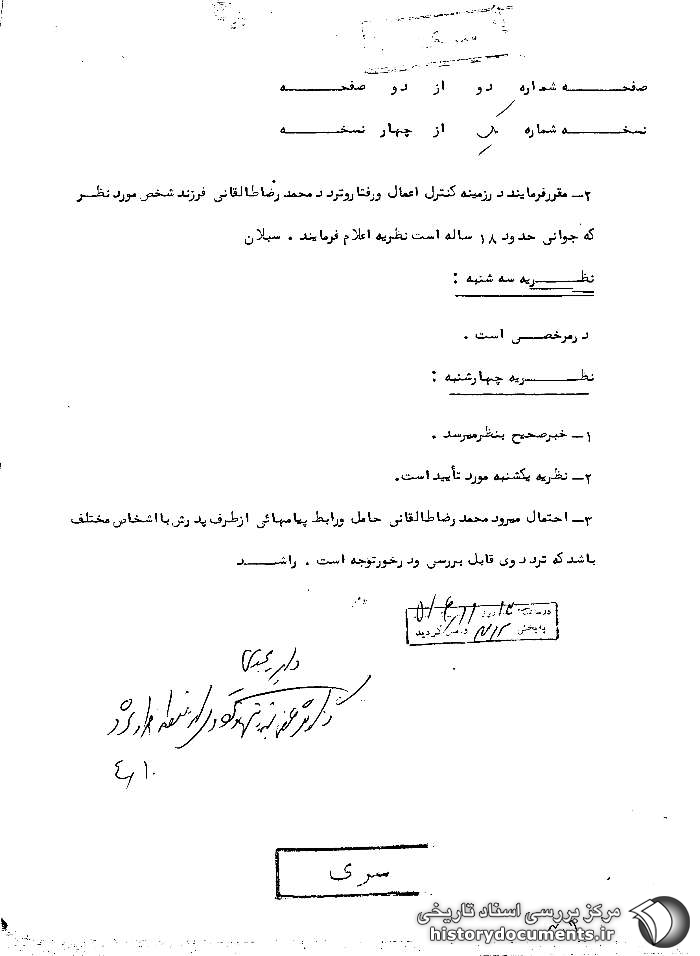 صفحـــــه شماره دو از دو صفحـــــه
نسخـــــه شماره یک از چهار نسخـــــه
۲ـ مقررفرمایند درزمینه کنترل اعمال ورفتاروتردد محمد رضاطالقانی فرزند شخص مورد نظر
که جوانی حدود ۱۸ ساله است نظریه اعلام فرمایند . سبلان
نظـــــریه سه شنبه :
درمرخصـــی است .
نظـــــریه چهارشنبه :
۱ـ خبرصحیح بنظرمیرسد .
۲ـ نظریه یکشنبه مورد تأیید است.
۳ـ احتمال میرود محمد رضاطالقانی حامل ورابط پیامهائی ازطرف پدرش با اشخاص مختلف
باشد که تردد وی قابل بررسی ودرخورتوجه است . راشـــــد
در ساعت ۱۲ روز
به بخش ۳۱۲ گردید
۱۰
سری
مرکز بررسی اسناد تاریخی
historydocuments.ir